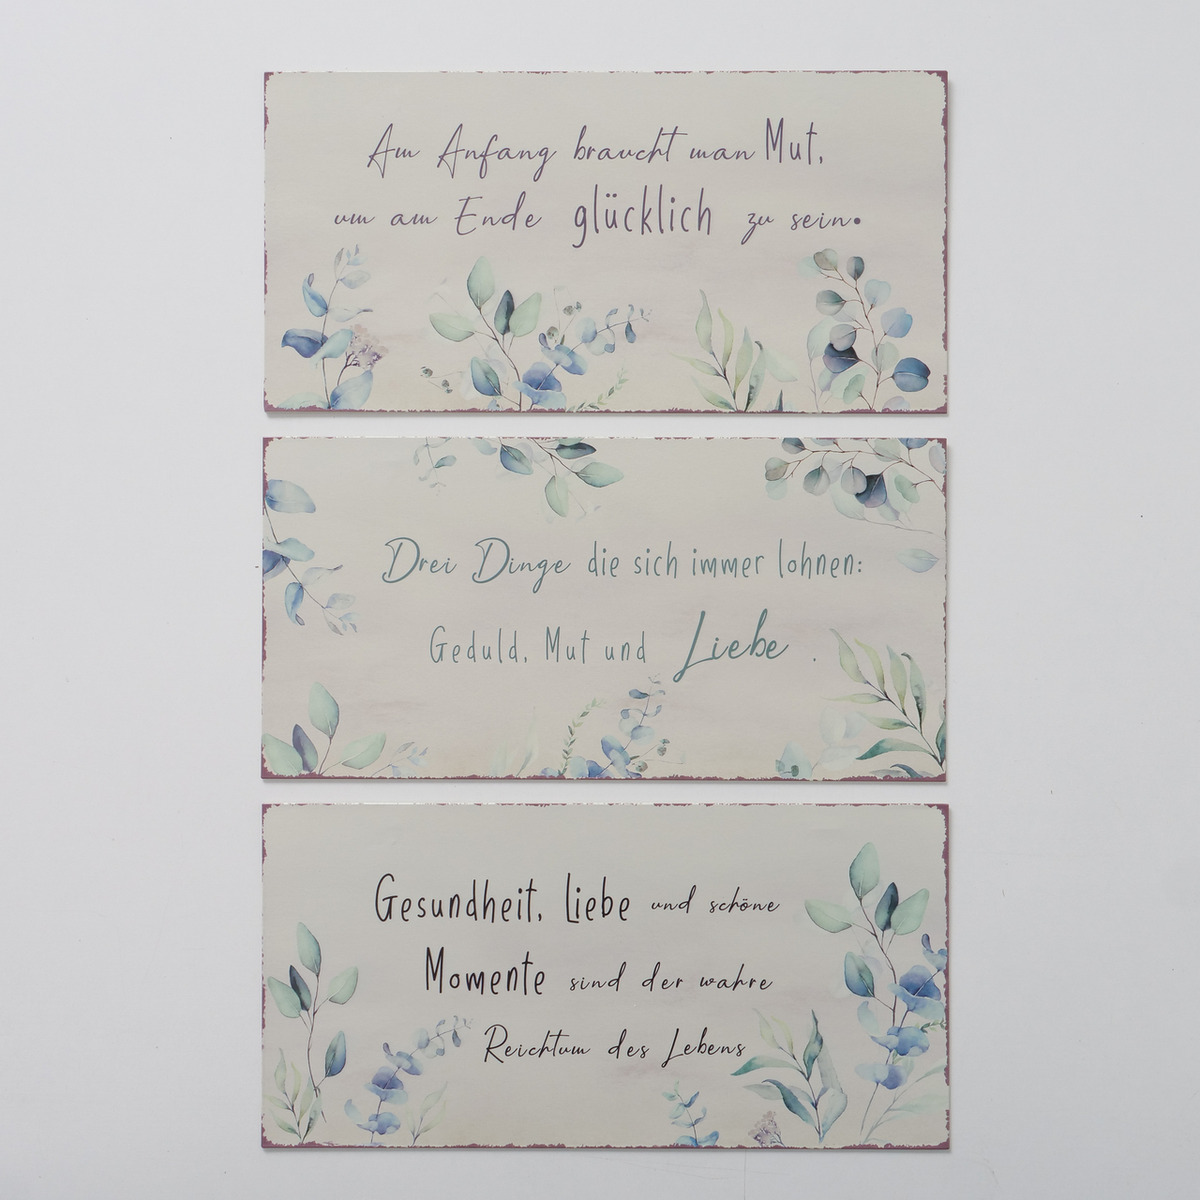 Am Anfang braucht man Mut,
um am Ende glücklich zu sein.
Drei Dinge die sich immer lohnen:
Geduld, Mut und Liebe .
Gesundheit, Liebe und schöne
Momente sind der wahre
Reichtum des Lebens